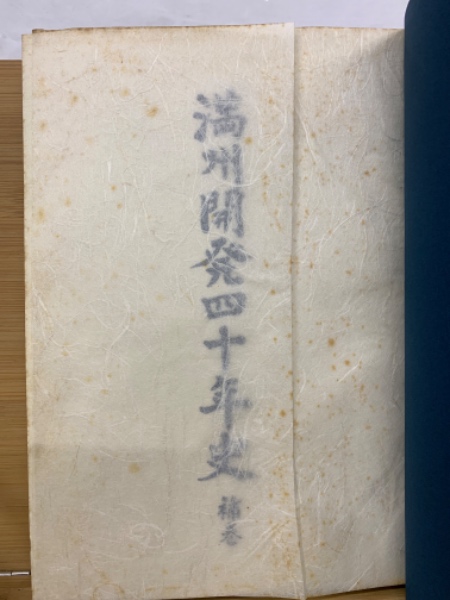 満州開発四十年史
補巻